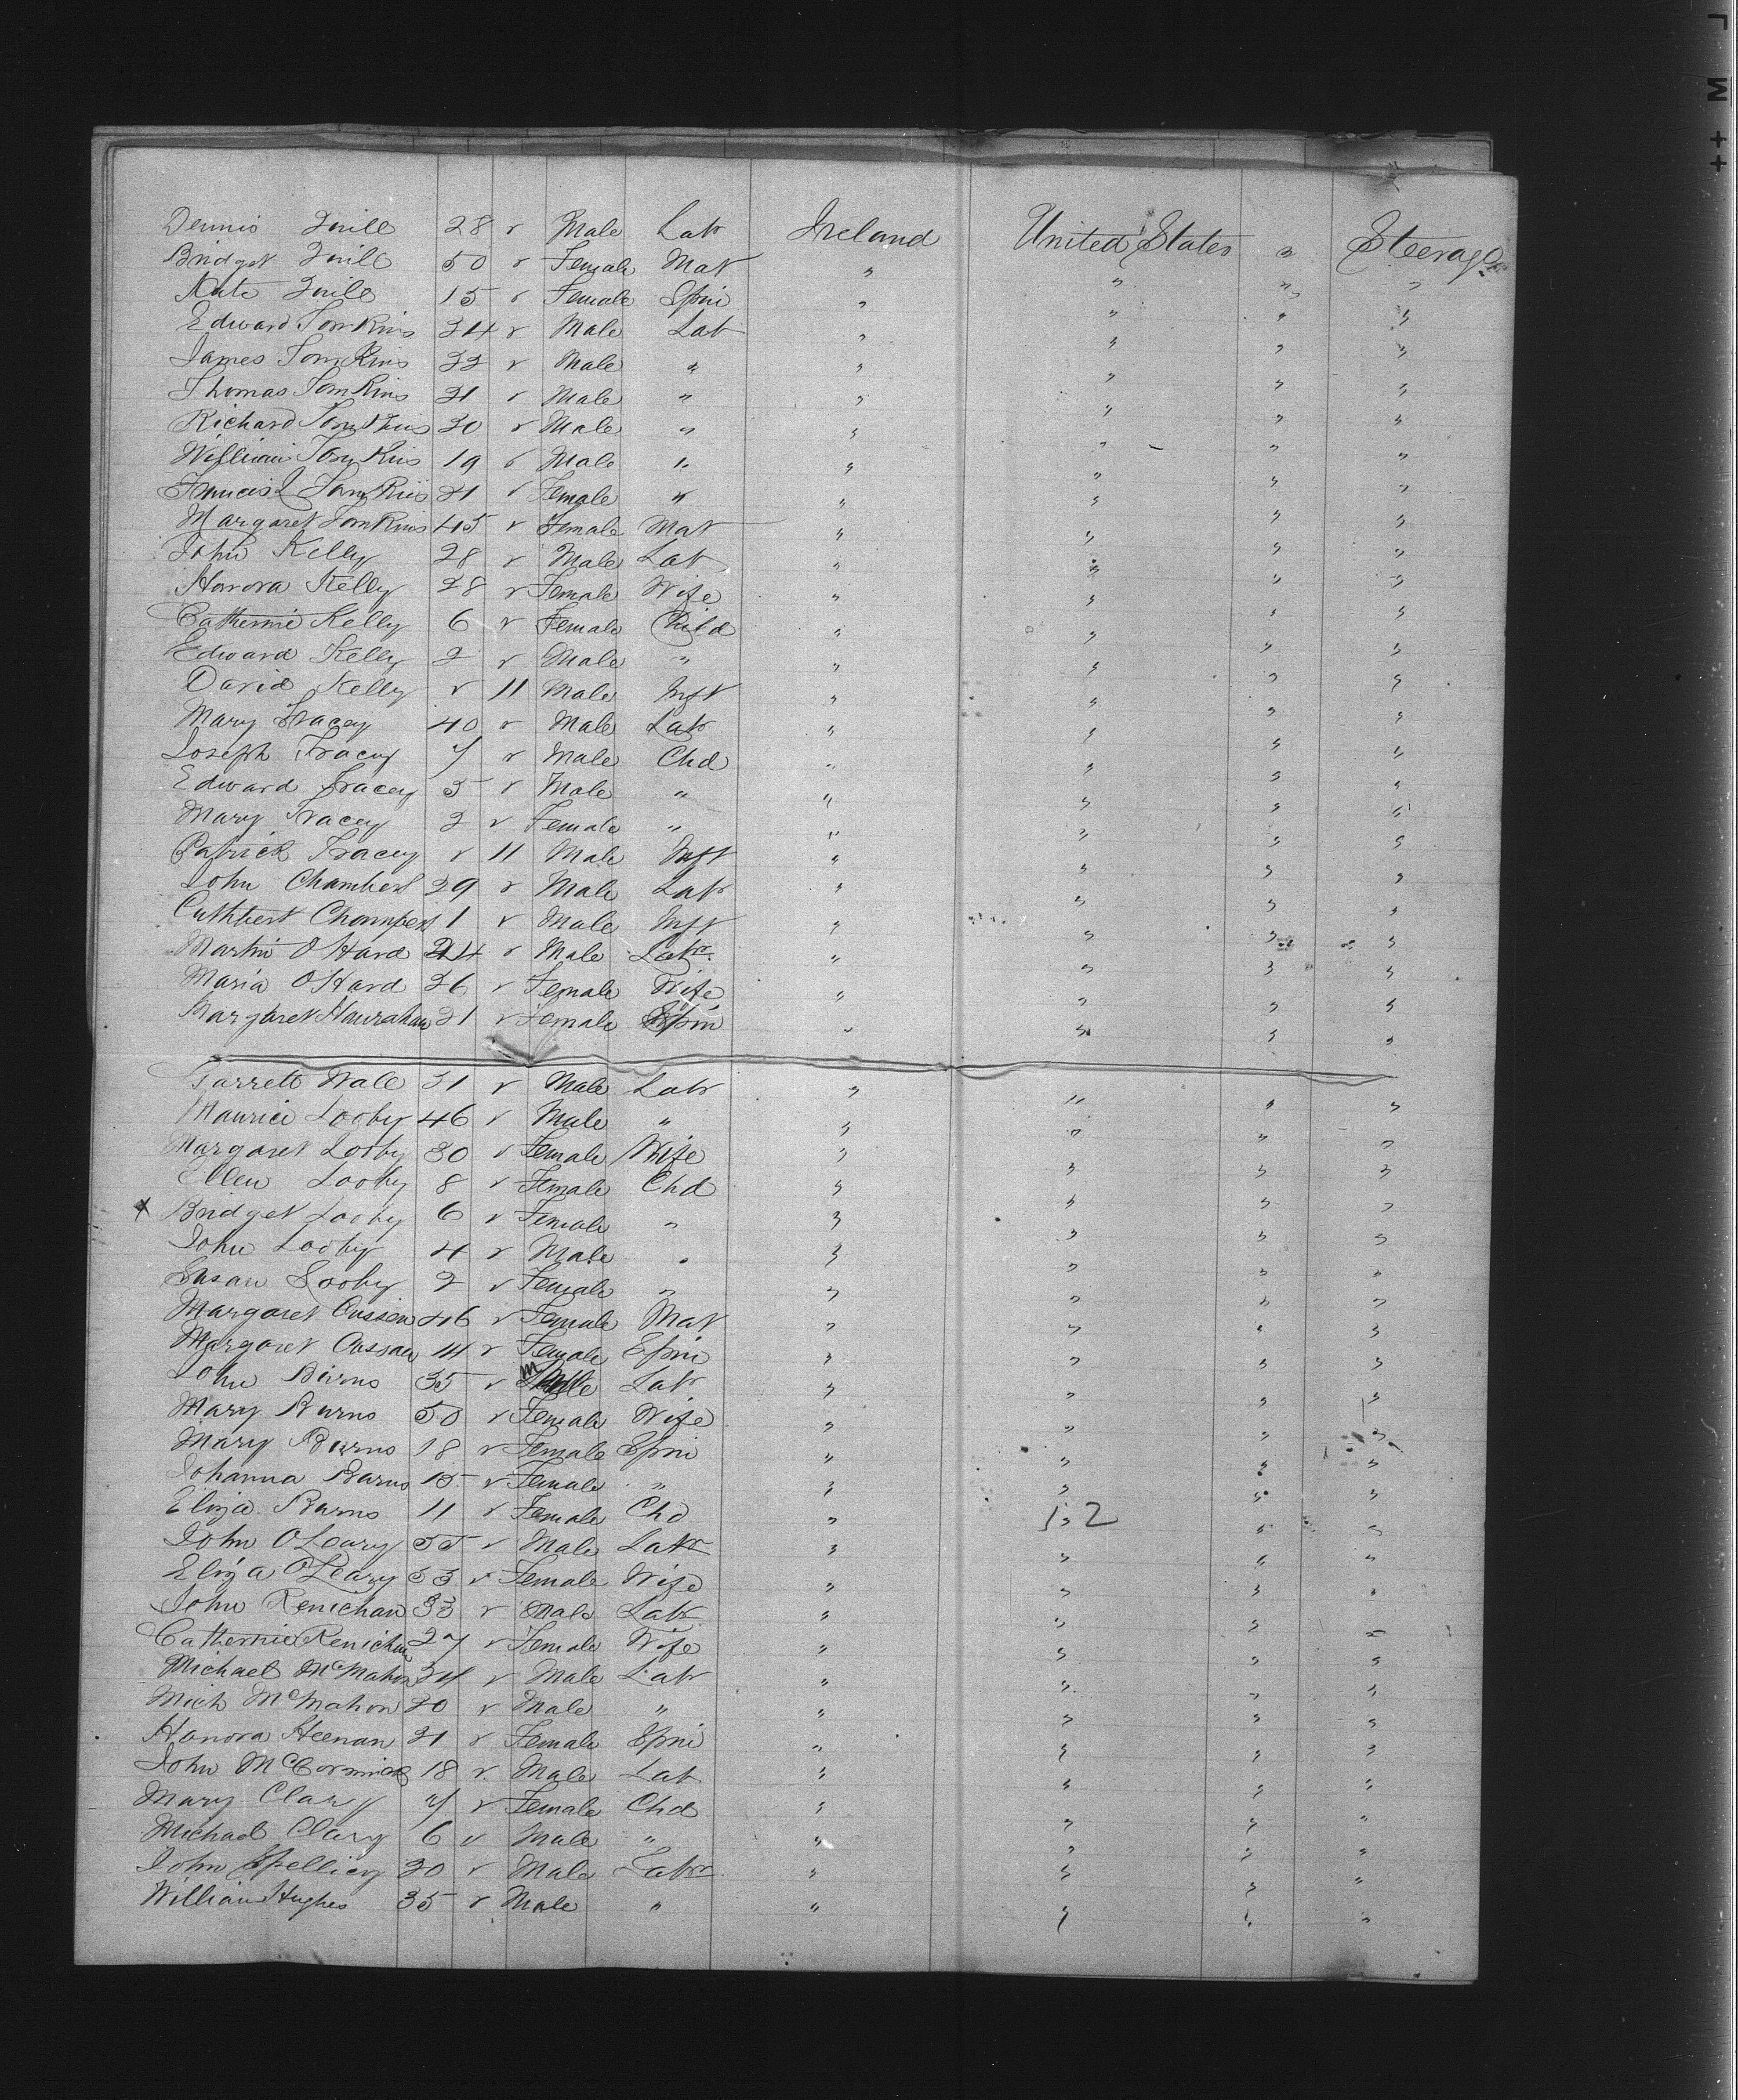 Dennis Quill 28 " Male Labr Ireland United States " Steerage
Bridget Quill 50 " Female Mat " " " "
Kate Quill 15 " Female Spin " " " "
Edward Tomkins 34 " Male Lab " " " "
James Tomkins 33 " Male " " " " "
Thomas Tomkins 21 " Male " " " " "
Richard Tomkins 20 " Male " " " " "
William Tomkins 19 " Male " " " " "
Tomkins 21 " Female " " " " "
Margaret Tomkins 45 " Female Mat " " " "
John Kelly 28 " Male Lab " " " "
Honora Kelly 28 " Female Wife " " " "
Catherine Kelly 6 " Female Child " " " "
Edward Kelly 2 " Male " " " " "
David Kelly " 11 Male Inft " " " "
Mary Tracey 40 " Male Labr " " " "
Joseph Tracey 7 " Male Chd " " " "
Edward Tracey 5 " Male " " " " "
Mary Tracey 2 " Female " " " " "
Patrick Tracey " 11 Male Inft " " " "
John Chambers 29 " Male Labr " " " "
Cuthbert Chambers 1 " Male Inft " " " "
Martin O Hard 24 " Male Labr " " " "
Maria O Hard 26 " Female Wife " " " "
Margaret Hanrahan 21 " Female Spin " " " "
Garrett Wall 31 " Male Labr " " " "
Maurice Looby 46 " Male " " " " "
Margaret Looby 30 " Female Wife " " " "
Ellen Looby 8 " Female Chd " " " "
X Bridget Looby 6 " Female " " " " "
John Looby 4 " Male " " " " "
Susan Looby 2 " Female " " " " "
Margaret Cussen 46 " Female Mat " " " "
Margaret Cussen 14 " Female Spin " " " "
John Burns 35 " Male Lab " " " "
Mary Burns 50 " Female Wife " " " "
Mary Burns 18 " Female Spin " " " "
Johanna Burns 15 " Female " " " " "
Eliza Burns 11 " Female Chd " 152 " "
John O'Leary 55 " Male Labr " " " "
Eliza O'Leary 53 " Female Wife " " " "
John Renichan 33 " Male Labr " " " "
Catherine Renichan 27 " Female Wife " " " "
Michael McMahon 34 " Male Labr " " " "
Mich McMahon 20 " Male " " " " "
Hanora Heenan 21 " Female Spin " " " "
John McCormick 18 " Male Lab " " " "
Mary Clary 7 " Female Chd " " " "
Michael Clary 6 " Male " " " " "
John Spellicy 20 " Male Labr " " " "
William Hughes 35 " Male " " " " "